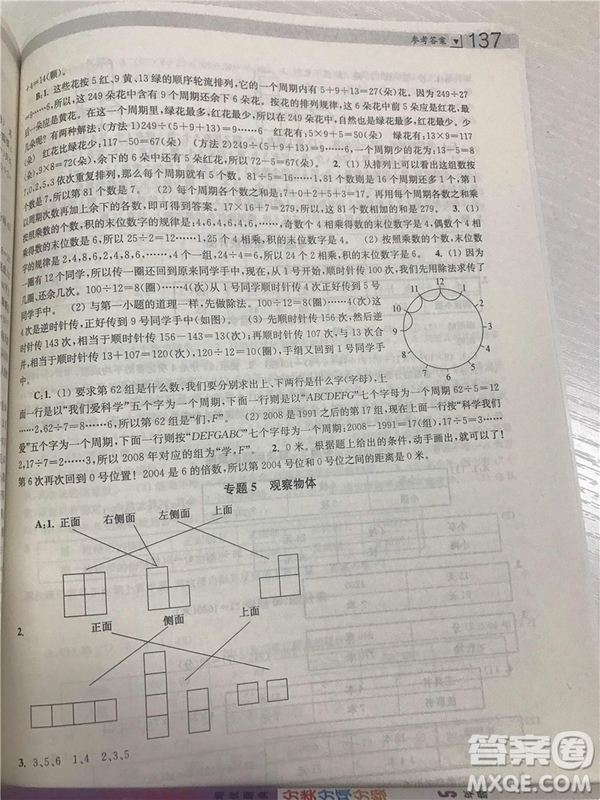 参考答案 ▼ 137
+4=14(颗)。
B:1. 这些花按 5 红、9 黄、13 绿的顺序轮流排列,它的一个周期内有 5+9+13=27(朵)花。249÷27
=9……6,所以,这 249 朵花中含有 9 个周期还余下 6 朵花。按花的排列规律,这 6 朵花中前 5 朵应是红花,最后
一朵应是黄花。在这一个周期里,绿花最多,红花最少,所以在 249 朵花中,自然也是绿花最多,红花最少。
有两种解法:(方法 1)249÷(5+9+13)=9……6 红花有:5×9+5=50(朵) 绿花有:13×9=117
(朵) 红花比绿花少:117-50=67(朵) (方法 2)249÷(5+9+13)=9……6
(朵),9×8=72(朵),余下的 6 朵中还有 5 朵红花,所以 72-5=67(朵)。 2. (1)从排列上可以看出这组数按
7,0,2,5,3 依次重复排列,所以第 81 个数是 7。 (2)每个周期各个数之和是:7+0+2+5+3=17。
周期次数再加上余下的各数,即可得到答案。17×16+7=279。所以,这 81 个数相加的和是 279。 3. (1)
按照乘数的个数,积的末位数字的规律是:4,6,4,6,4,6,……,奇数个 4 相乘得数的末位数字是 4,偶数个 4 相
乘得数的末位数是 6。所以 25÷2=12……1,25 个 4 相乘,积的末位数字是 4。 (2)按照乘数的个数,积的末位数
字的规律是 2,4,8,6,2,4,8,6,……4 个一组,244÷4=61,所以,积的末位数字是 6。 4. (1)因为
一圈有 12 个同学,所以传一圈还回到原来同学手中,现在从 1 号开始,顺时针传 100 次,我们用除法求传了
几圈、还余几次。100÷12=8(圈)……4(次),所以,从 1 号同学顺时针传 4 次正好传到 5 号
同学手中。 (2)与第一小题的道理一样,先做除法。100÷12=8(圈)……4(次),所以,从 1 号
4 次是逆时针传,正好传到 9 号同学手中(如图)。 (3)先顺时针传 156 次,然后逆时针
传 143 次,相当于顺时针传 156-143=13(次);再顺时针传 107 次,与 13 次合
并,相当于顺时针传 13+107=120(次),120÷12=10(圈),手绢又回到了 1 号同学手中。
11 12 1
10 2
9 3
8 4
7 6 5
C:1. (1) 要求第 62 组是什么数,我们要分别求出上、下两行是什么字(字母),上
面一行是以“我们爱科学”五个字为一个周期,下面一行是以“ABCDEFG”七个字母为一个周期 62÷5=12
……2,62÷7=8……6,所以第 62 组是“们,F”。 (2) 2008 是 1991 之后的第 17 组,现在上面一行按“科学我们
爱”五个字为一个周期,下面一行按“DEFGABC”七个字母为一个周期:2008-1991=17(组) 17÷5=3……
2,17÷7=2……3,所以 2008 年对应的组为“学,F”。 2. 根据题目给出的条件,动手画出,就可以了!
第 6 次再次回到 0 号位置! 2004 是 6 的倍数,所以,第 2004 个位置与 0 号位之间的距离是 0 米。
专题 5 观察物体
A:1. 正面 右侧面 左侧面 上面
2. 正面 侧面 上面
3. 3,5,6 1,4 2,3,5
分类分项分级
5年级
答案圈
MXQE.COM